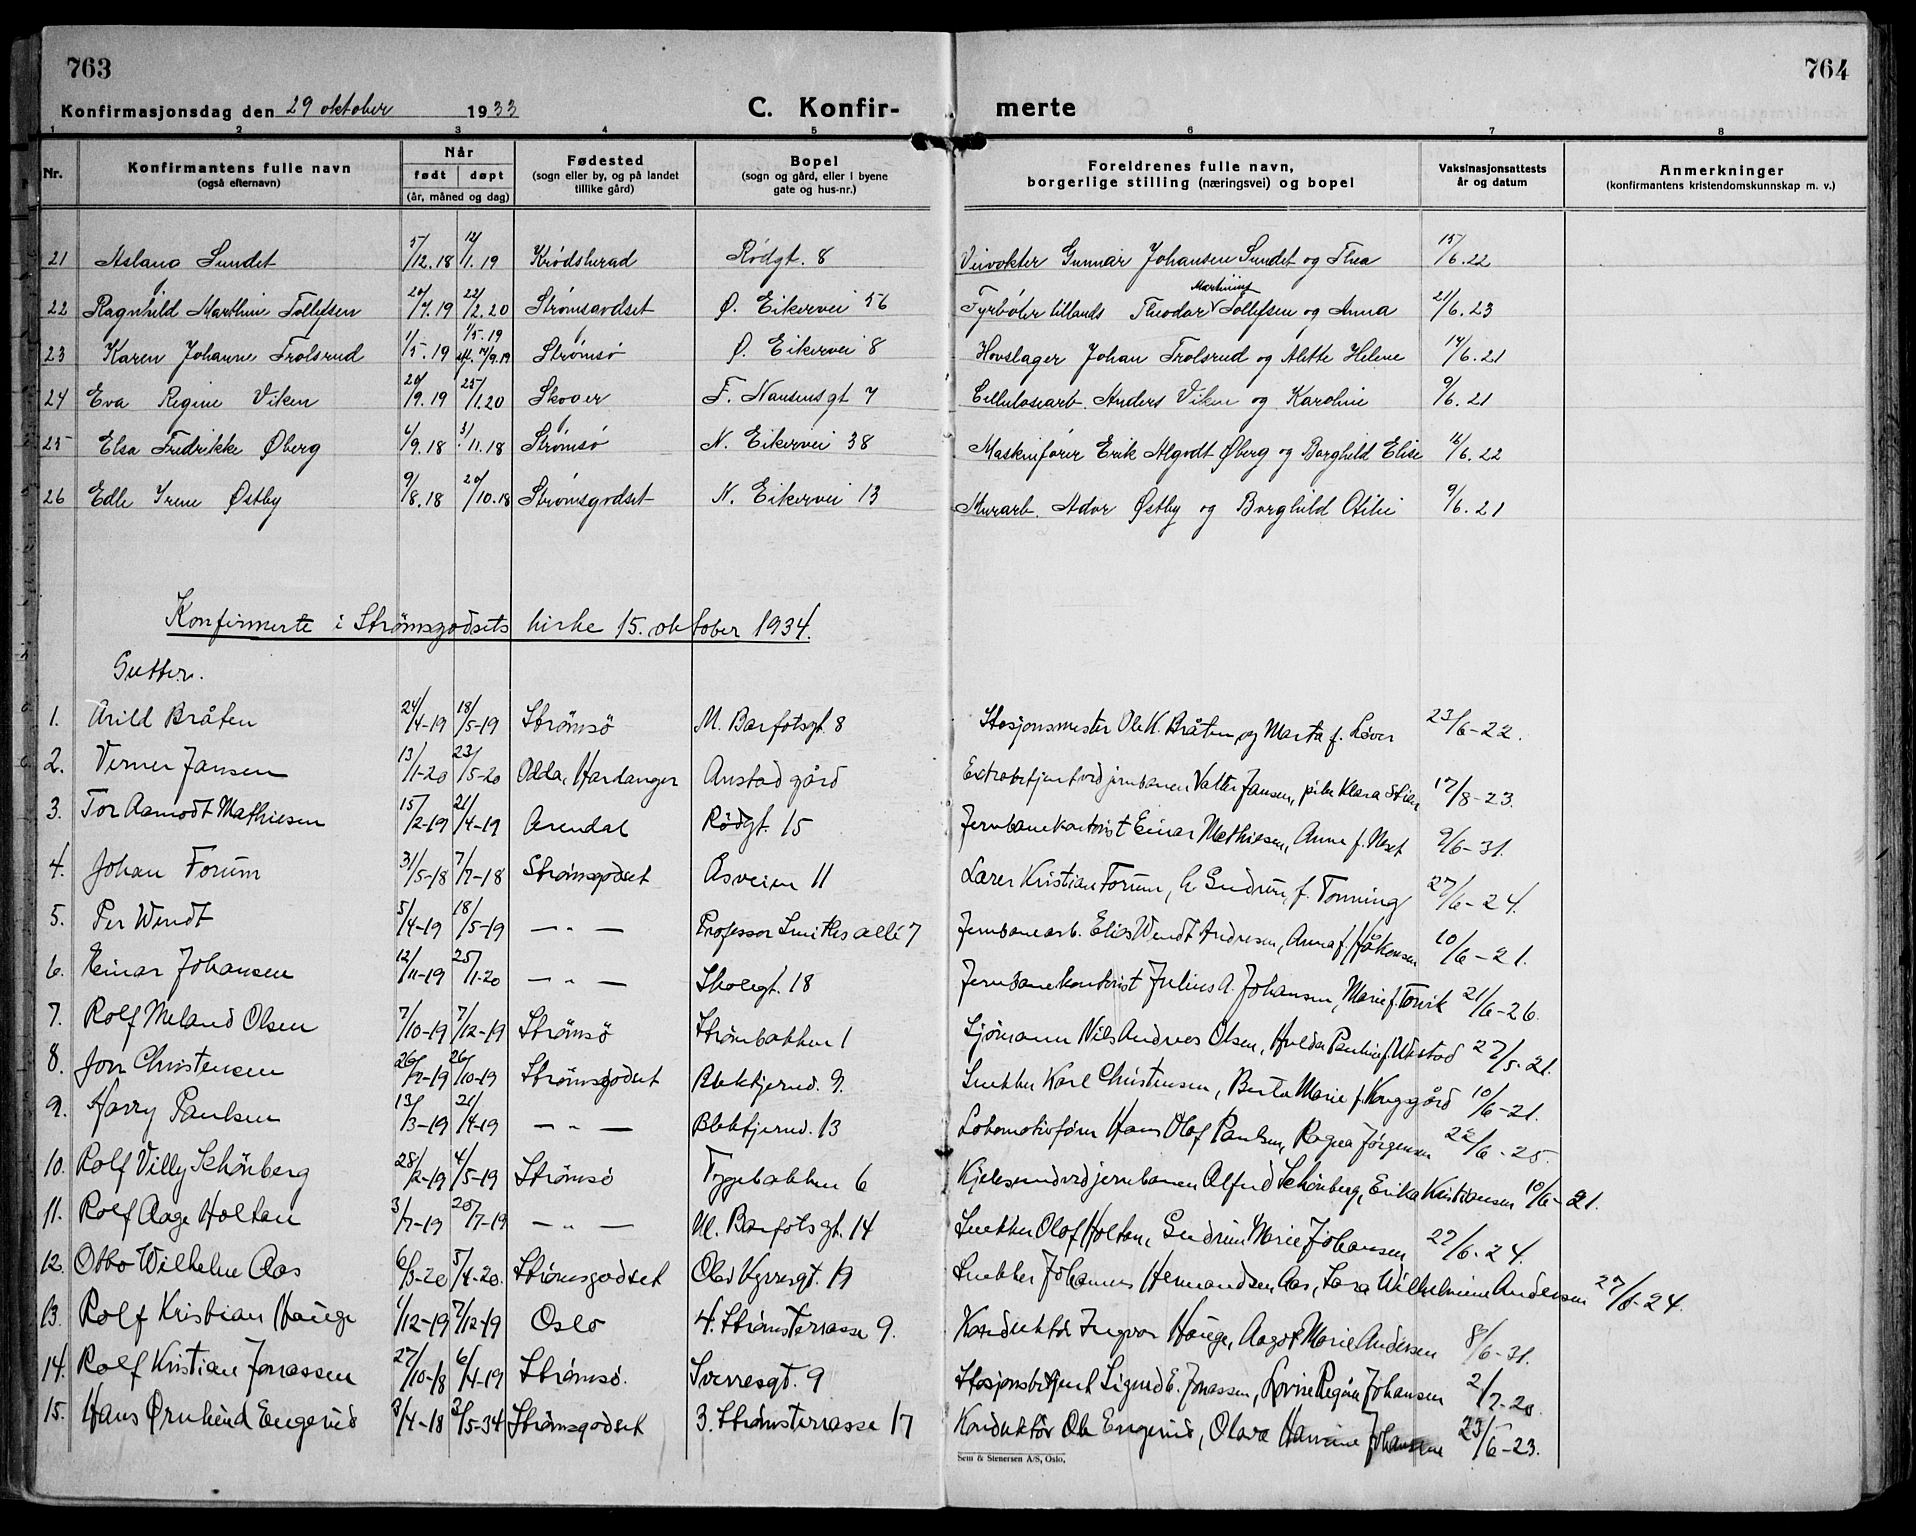 763
764
Konfirmasjonsdag den 29 oktober 1933
C. Konfir-
merte
1 2 3 4 5 6 7 8
Nr. Konfirmantens fulle navn (også efternavn) Når født døpt (år, måned og dag) Fødested (sogn eller by, og på landet tillike gård) Bopel (sogn og gård, eller i byene gate og hus-nr.) Foreldrenes fulle navn, borgerlige stilling (næringsvei) og bopel Vaksinasjonsattests år og datum Anmerkninger (konfirmantens kristendomskunnskap m. v.)
21 Aslaug Sundet 5/12.18 12/1.19 Krødsherad Rødgt. 8 Veivokter Gunnar Johansen Sundet og Thea 15/6.22
22 Ragnhild Marthine Tollefsen 20/7.19 22/2.20 Strømsgodset Ø. Eikervei 56 Fyrbøter tillands Theodor Martinius Tollefsen og Anna 21/6.23
23 Karen Johanne Trolsrud 1/5.19 1/5.19 st. 7/9.19 Strømsø Ø. Eikervei 8 Hovslager Johan Trolsrud og Alette Helene 14/6.21
24 Eva Regine Viken 20/9.19 25/1.20 Skoger F. Nansensgt 7 Cellulosearb. Anders Viken og Karoline 9/6.21
25 Elsa Fredrikke Øberg 6/9.18 3/11.18 Strømsø N. Eikervei 38 Maskinfører Erik Algodt Øberg og Borghild Elise 16/6.22
26 Edle Irene Østby 9/8.18 20/10.18 Strømsgodset N. Eikervei 13 Murarb. Ador Østby og Borghild Otilie 9/6.21
Konfirmerte i Strømsgodsets kirke 15. oktober 1934.
Gutter.
1. Arild Bråten 24/4-19 18/5-19 Strömsö M. Barfotsgt 8 Stasjonsmester Ole K. Bråten, og Marta f. Løver 23/6-22.
2. Verner Jansen 13/11-20 23/5-20 Odda, Hardanger Austad gård Extrabetjent ved jernbanen Valter Jansen, Klara 17/8-23.
3. Tor Aamodt Mathiesen 15/2-19 21/4-19 Arendal Rødgt. 15 Jernbanekontorist Einar Mathiesen, Anna f. Næset 9/6-31.
4. Johan Forum 31/5-18 7/7-18 Strømsgodset Åsveien 11 Lærer Kristian Forum, Gudrun, f. Tonning 27/6-24.
5. Per Wendt 5/4-19 18/5-19 — " — Professor Smiths allé 7 Jernbanearb. Elias Wendt Andresen, Anna f. Håkonsen 10/6-21.
6. Einar Johansen 12/11-19 25/1-20 — " — Skolegt. 18 Jernbanekontorist Julius A. Johansen, Marie f. Torvik 21/6-26.
7. Rolf Meland Olsen 7/10-19 7/12-19 Strömsö Strömbakken 1 Sjömann Nils Andreas Olsen, Hulda Pauline f. 27/5-21.
8. Jon Christensen 26/2-19 26/10-19 Strömsgodset Blektjernd. 9. Snekker Karl Christensen, Berta Marie f. Kongsgård 10/6-21.
9. Harry Paulsen 13/3-19 21/4-19 — " — Blektjernd. 13 Lokomotivförer Hans Olof Paulsen, Ragna Jörgensen 22/6-25.
10. Rolf Villy Schönberg 28/2-19 4/5-19 Strömsö Tyggebakken 6 Kjelesmed ved jernbanen Alfred Schönberg, Erika Kristiansen 10/6-21.
11. Rolf Aage Holtan 3/7-19 20/7-19 — " — M. Barfotsgt. 14 Snekker Olof Holtan, Gudrun Marie Johansen 27/6-24.
12. Otto Wilhelm Aas 6/3-20 5/4-20. Strömsgodset Olav Kyrresgt. 19 Snekker Johannes Hermandsen Aas, Sara Wilhelmine Andersen 27/6-24.
13. Rolf Kristian Hauge 1/12-19 7/12-19 Oslo 4. Strömsterrasse 9. Konduktör Ingvar Hauge, Aagot Marie Andersen 8/6-31.
14. Rolf Kristian Jonassen 27/10-18 6/4-19 Strömsö. Sverresgt. 9 Stasjonsbetjent Sigurd E. Jonassen, Lovise Regine Johansen 2/7-20.
15. Hans Ørnhend Engerud 3/4-18 2/5-34 Strömsgodset 3. Strömsterrasse 17 Konduktör Ole Engerud, Olava Hansine Johansen 23/6-23.
Sem & Stenersen A/S, Oslo.